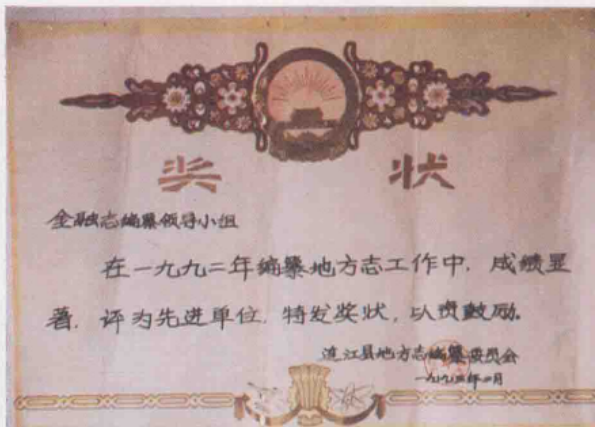 奖 状
金融志编纂领导小组
在一九九二年编纂地方志工作中，成绩显
著，评为先进单位，特发奖状，以资鼓励。
连江县地方志编纂委员会
一九九三年二月